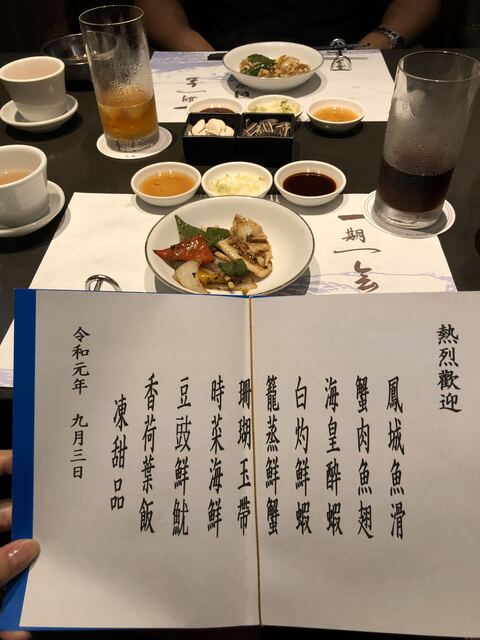 一期一会
熱烈歡迎
鳳城魚滑
蟹肉魚翅
海皇醉蝦
白灼鮮蝦
籠蒸鮮蟹
珊瑚玉帶
時菜海鮮
豆豉鮮魷
香荷葉飯
凍甜品
令和元年 九月三日